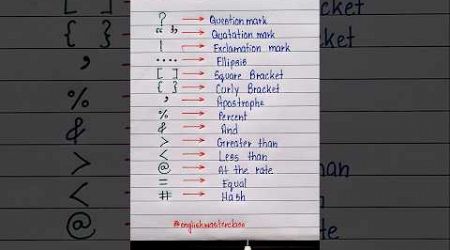 ? → Question mark
“ ” → Quatation mark
! → Exclamation mark
.... → Ellipsis
[ ] → Square Bracket
{ } → Curly Bracket
’ → Apostrophe
% → Percent
& → And
> → Greater than
< → Less than
@ → At the rate
= → Equal
# → Hash